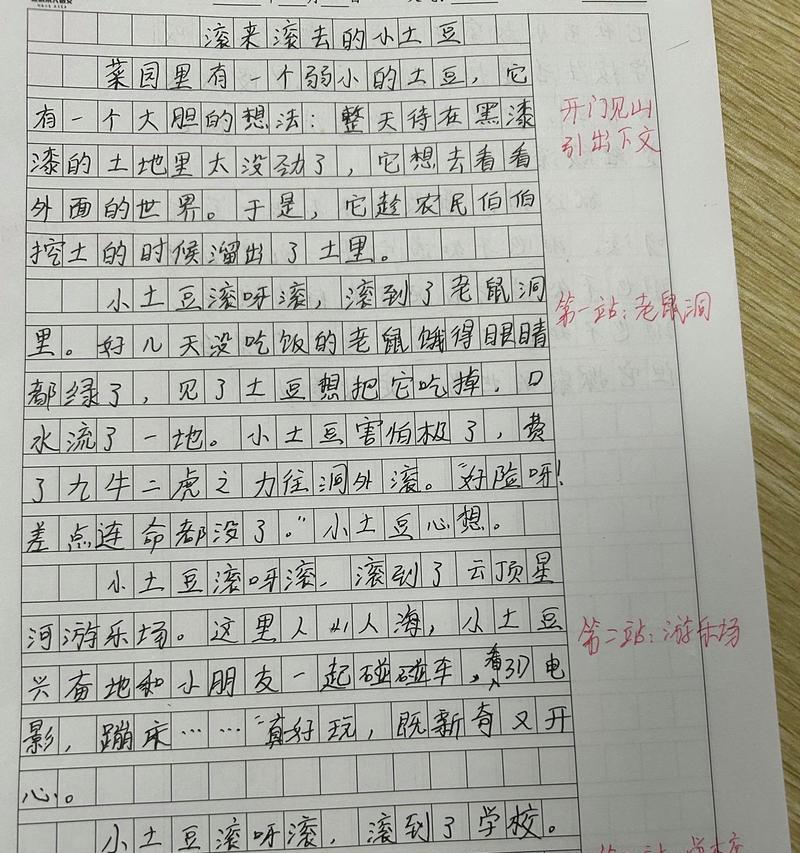 滚来滚去的小土豆
菜园里有一个弱小的土豆，它
有一个大胆的想法：整天待在黑漆
漆的土地里太没劲了，它想去看看
外面的世界。于是，它趁农民伯伯
挖土的时候溜出了土里。
小土豆滚呀滚，滚到了老鼠洞
里。好几天没吃饭的老鼠饿得眼睛
都绿了，见了土豆想把它吃掉，口
水流了一地。小土豆害怕极了，费
了九牛二虎之力往洞外滚。“好险呀！
差点连命都没了。”小土豆心想。
小土豆滚呀滚，滚到了云顶星
河游乐场。这里人山人海，小土豆
兴奋地和小朋友一起碰碰车，看3D电
影，蹦床……“真好玩，既新奇又开
心。
小土豆滚呀滚，滚到了学校。
开门见山
引出下文
第一站：老鼠洞
第二站：游乐场